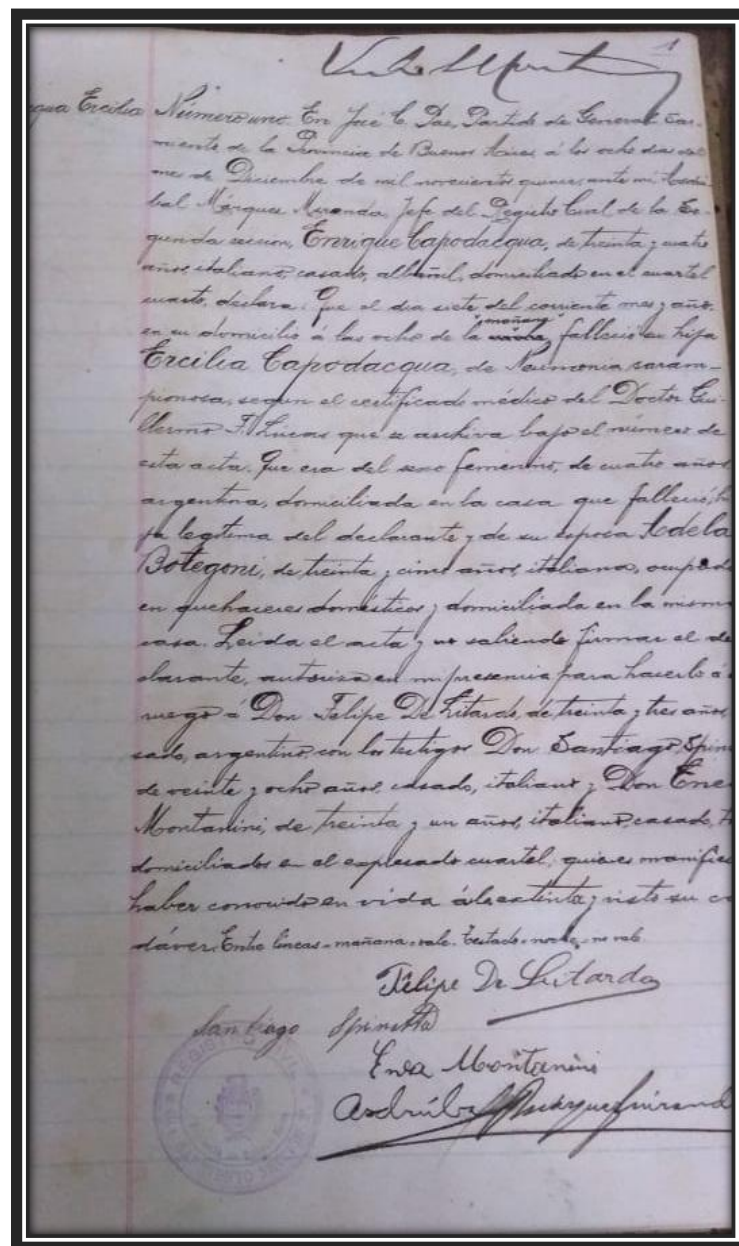 1
qua Ercilia Número uno. En José C. Paz, Partido de General Sar-
miento de la Provincia de Buenos Aires, á los ocho dias del
mes de Diciembre de mil novecientos quince, ante mí Asdrú
bal Márquez Miranda, Jefe del Registro Civil de la Se-
gunda sección, Enrique Capodacqua, de treinta y cuatro
años, italiano, casado, albañil, domiciliado en el cuartel
cuarto, declara: Que el dia siete del corriente mes y año,
en su domicilio á las ocho de la noche "mañana" falleció su hija
Ercilia Capodacqua, de Neumonia saram-
pionosa, segun el certificado médico del Doctor Gui-
llermo F. Lucas que se archiva bajo el número de
esta acta. Que era del sexo femenino, de cuatro años
argentina, domiciliada en la casa que falleció, hi
ja legítima del declarante y de su esposa Adela
Botegoni, de treinta y cinco años, italiana, ocupada
en quehaceres domésticos y domiciliada en la misma
casa. Leida el acta y no saliendo firmar el de
clarante, autoriza en mi presencia para hacerlo á
ruego á Don Felipe De Litardo, de treinta y tres años,
sado, argentino, con los testigos Don Santiago Spine
de veinte y ocho años, casado, italiano y Don Enea
Montanini, de treinta y un años, italiano, casado,
domiciliados en el expresado cuartel, quienes manifies
haber conocido en vida á la extinta y visto su ca
dáver. Entre líneas - mañana - vale. Testado - noche - no vale
Felipe De Litardo
Santiago Spinetta
Enea Montanini
Asdrúbal Márquez Miranda
REGISTRO CIVIL